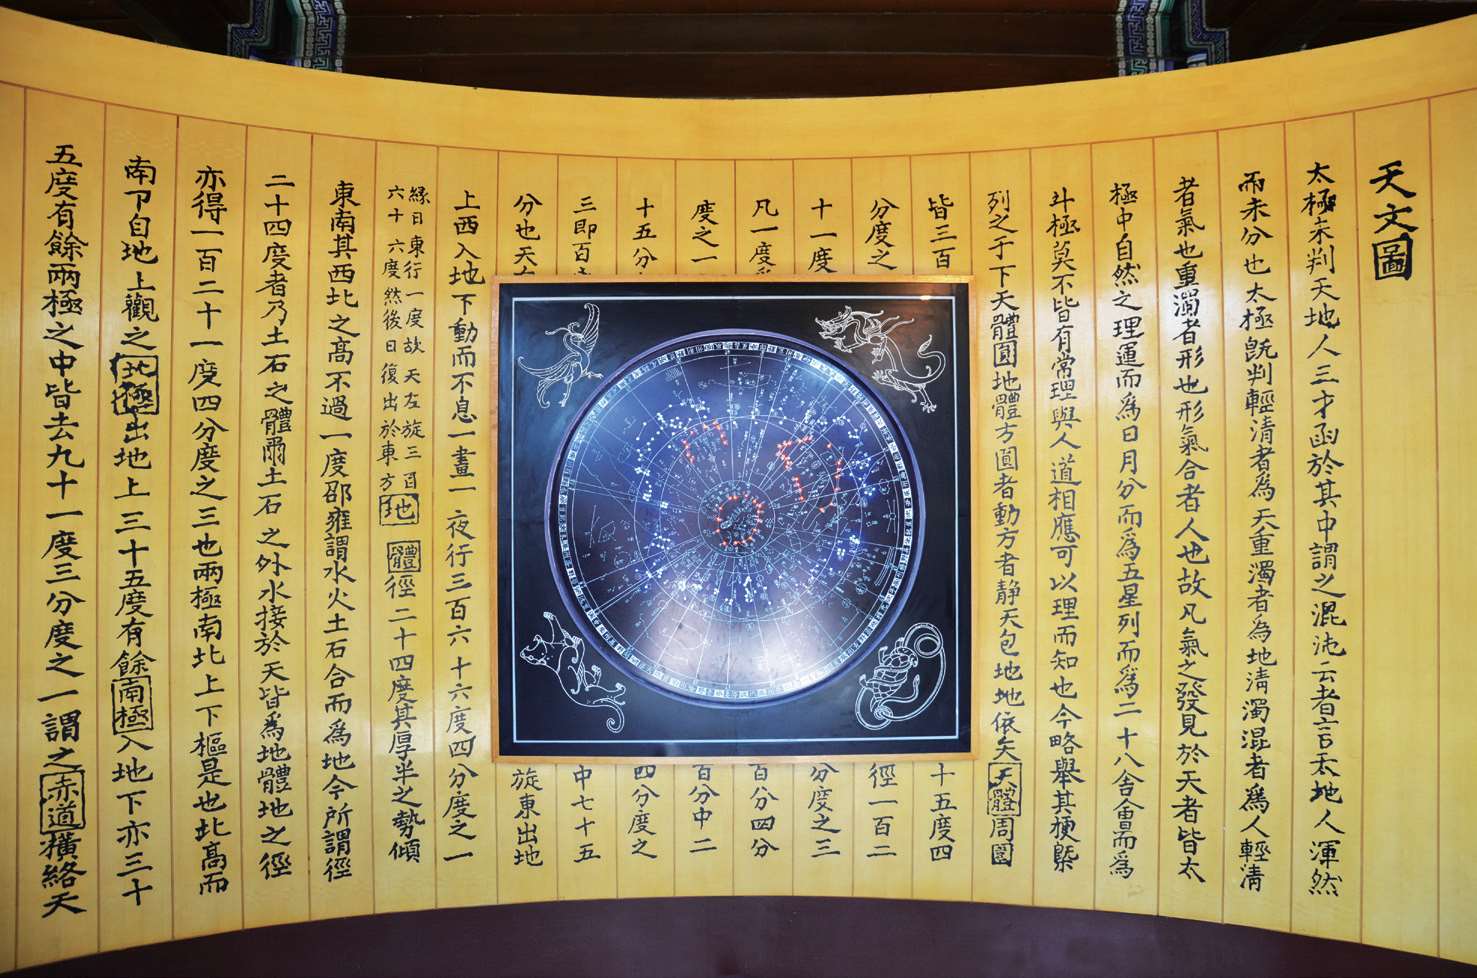 天文圖
太極未判天地人三才函於其中謂之混沌云者言天地人渾然
而未分也太極既判輕清者為天重濁者為地清濁混者為人輕清
者氣也重濁者形也形氣合者人也故凡氣之發見於天者皆太
極中自然之理運而為日月分而為五星列而為二十八舍會而為
斗極莫不皆有常理與人道相應可以理而知也今略舉其梗槩
列之于下天體圓地體方圓者動方者静天包地地依天天體周圍
皆三百 十五度四
分度之 徑一百二
十一度 分度之三
凡一度 百分四分
度之一 百分中二
十五分 四分度之
三即百 中七十五
分也天 旋東出地
上西入地下動而不息一晝一夜行三百六十六度四分度之一
緣日東行一度故天左旋三百
六十六度然後日復出於東方
地體徑二十四度其厚半之勢傾
東南其西北之高不過一度邵雍謂水火土石合而為地今所謂徑
二十四度者乃土石之體爾土石之外水接於天皆為地體地之徑
亦得一百二十一度四分度之三也兩極南北上下樞是也北高而
南下自地上觀之北極出地上三十五度有餘南極入地下亦三十
五度有餘兩極之中皆去九十一度三分度之一謂之赤道橫絡天